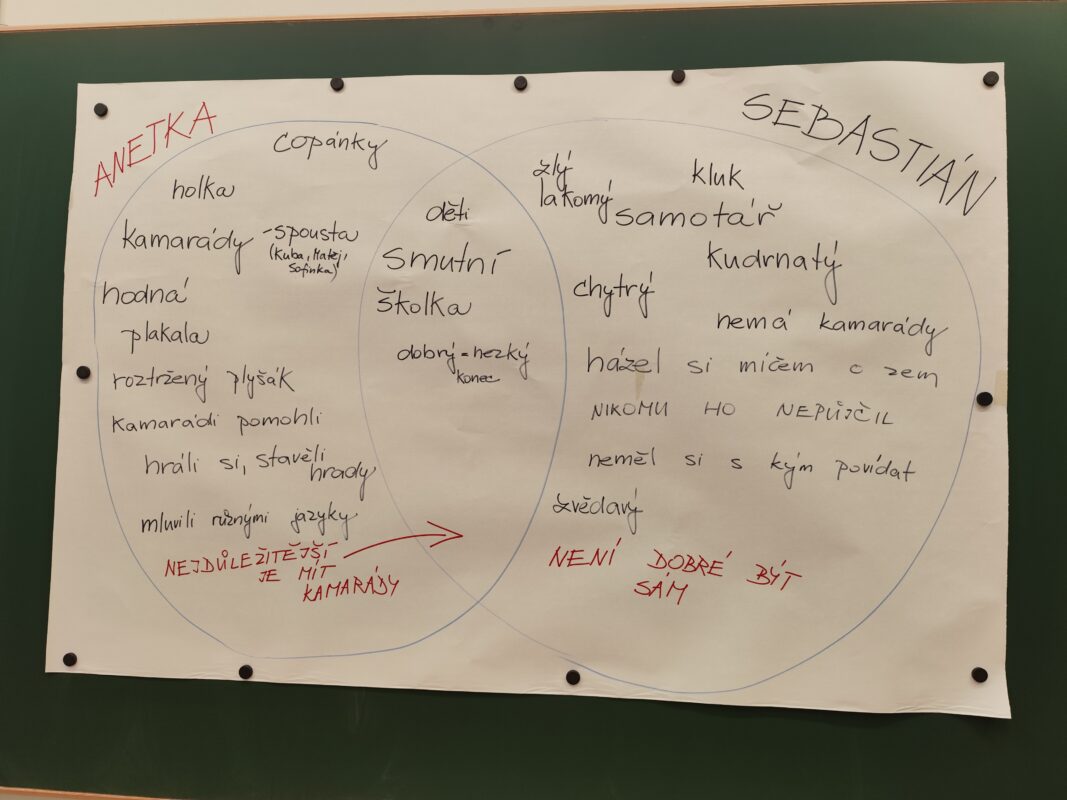 ANETKA
copánky
holka
kamarády - spousta
(Kuba, Matej,
Sofinka)
hodná
plakala
roztržený plyšák
kamarádi pomohli
hráli si, stavěli
hrady
mluvili různými jazyky
NEJDŮLEŽITĚJŠÍ
JE MÍT
KAMARÁDY
děti
smutní
školka
dobrý = hezký
konec
SEBASTIÁN
zlý
lakomý
kluk
samotář
kudrnatý
chytrý
nemá kamarády
házel si míčem o zem
NIKOMU HO NEPŮJČIL
neměl si s kým povídat
zvědavý
NENÍ DOBRÉ BÝT
SÁM